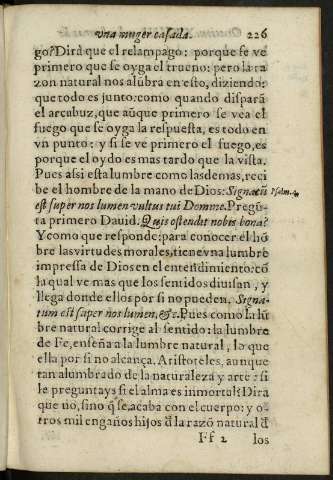 vna muger casada. 226
go? Dirà que el relampago: porque se ve
primero que se oyga el trueno: pero la ra
zon natural nos alũbra en esto, diziendo:
que todo es junto: como quando disparã
el arcubuz, que aũque primero se vea el
fuego que se oyga la respuesta, es todo en
vn punto: y si se ve primero el fuego, es
porque el oydo es mas tardo que la vista.
Pues assi esta lumbre como las demas, reci
be el hombre de la mano de Dios: Signatũ Psalm. 4.
est super nos lumen vultus tui Domine. Pregũ
ta primero Dauid. Quis ostendit nobis bona?
Y como que responde: para conocer el hõ
bre las virtudes morales, tiene vna lumbre
impressa de Dios en el entendimiento: cõ
la qual ve mas que los sentidos diuisan, y
llega donde ellos por si no pueden. Signa-
tum est super nos lumen, &c. Pues como la lũ
bre natural corrige al sentido: la lumbre
de Fe, enseña a la lumbre natural, lo que
ella por si no alcança. Aristoteles, aunque
tan alumbrado de la naturaleza y arte: si
le preguntays si el alma es inmortal? Dirà
que no, sino q̃ se acaba con el cuerpo: y o-
tros mil engaños hijos d̃ la razõ natural d̃
Ff 2 los